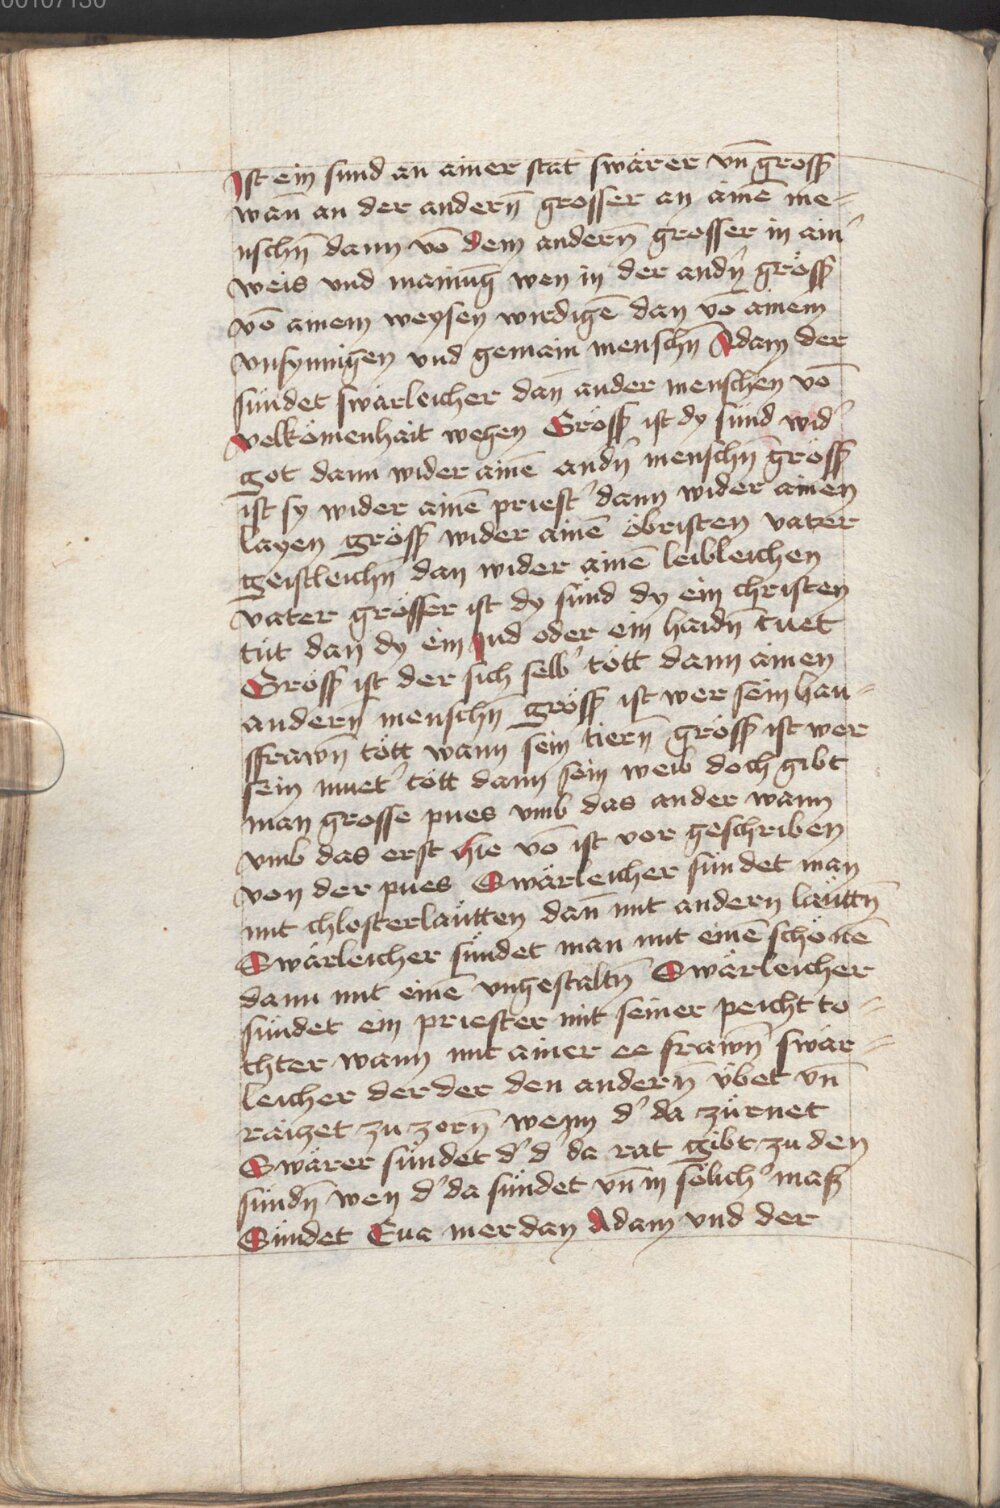 00107130
Ist ein sund an ainer stat swärer vn̄ gröss̉
wan̄ an der andern̄ grosser an aine͂ me-
nschn̄ dann vo͂ dem andern̄ grosser in ain̉
weis vnd mainūg wen in der andn̉ gröss̉
vo͂ ainem weysen wirdige͂ dan vo͂ ainem
vnsynnigen vnd gemain menschn̄ Adam der
sündet swärleicher dan̄ ander menschen vo͂
volkömenhait wegen Gröss̉ ist dy sünd wid̉
got dann wider aine͂ andn̉ menschn̄ gröss̉
ist sy wider aine͂ priest̉ dann wider ainen
layen gröss̉ wider aine͂ öbristen vater
geistleichn̄ dan wider aine͂ leibleichen
vater grösser ist dy sünd dy ein christen
tüt dan dy ein Jud oder ein haidn̄ tuet
Gröss̉ ist der sich selb̉ tött dann ainen
andern̄ menschn̄ gröss̉ ist wer sein hau-
sfrawn̄ tött wann sein tiern̄ gröss̉ ist wer
sein muet̉ tött dann sein weib doch gibt
man grosse pues vmb das ander wann
vmb das erst Hie vo͂ ist vor geschriben
von der pues Swärleicher sündet man
mit chlosterläutten dan̄ mit andern läuttn̄
Swärleicher sündet man mit eine͂ schöne͂
dann mit eine͂ vngestaltn̄ Swärleicher
sündet ein priester mit seiner peicht to-
chter wann mit ainer ee frawn̄ swär-
leicher der der den andern̄ übet vn̄
räitzet zu zorn̄ wenn d̉ da zürnet
Swärer sündet d̉ d̉ da rat gibt zu den
sündn̄ wen d̉ da sündet vn̄ in sölich̉ mass
Sündet Eua mer dan Adam vnd der